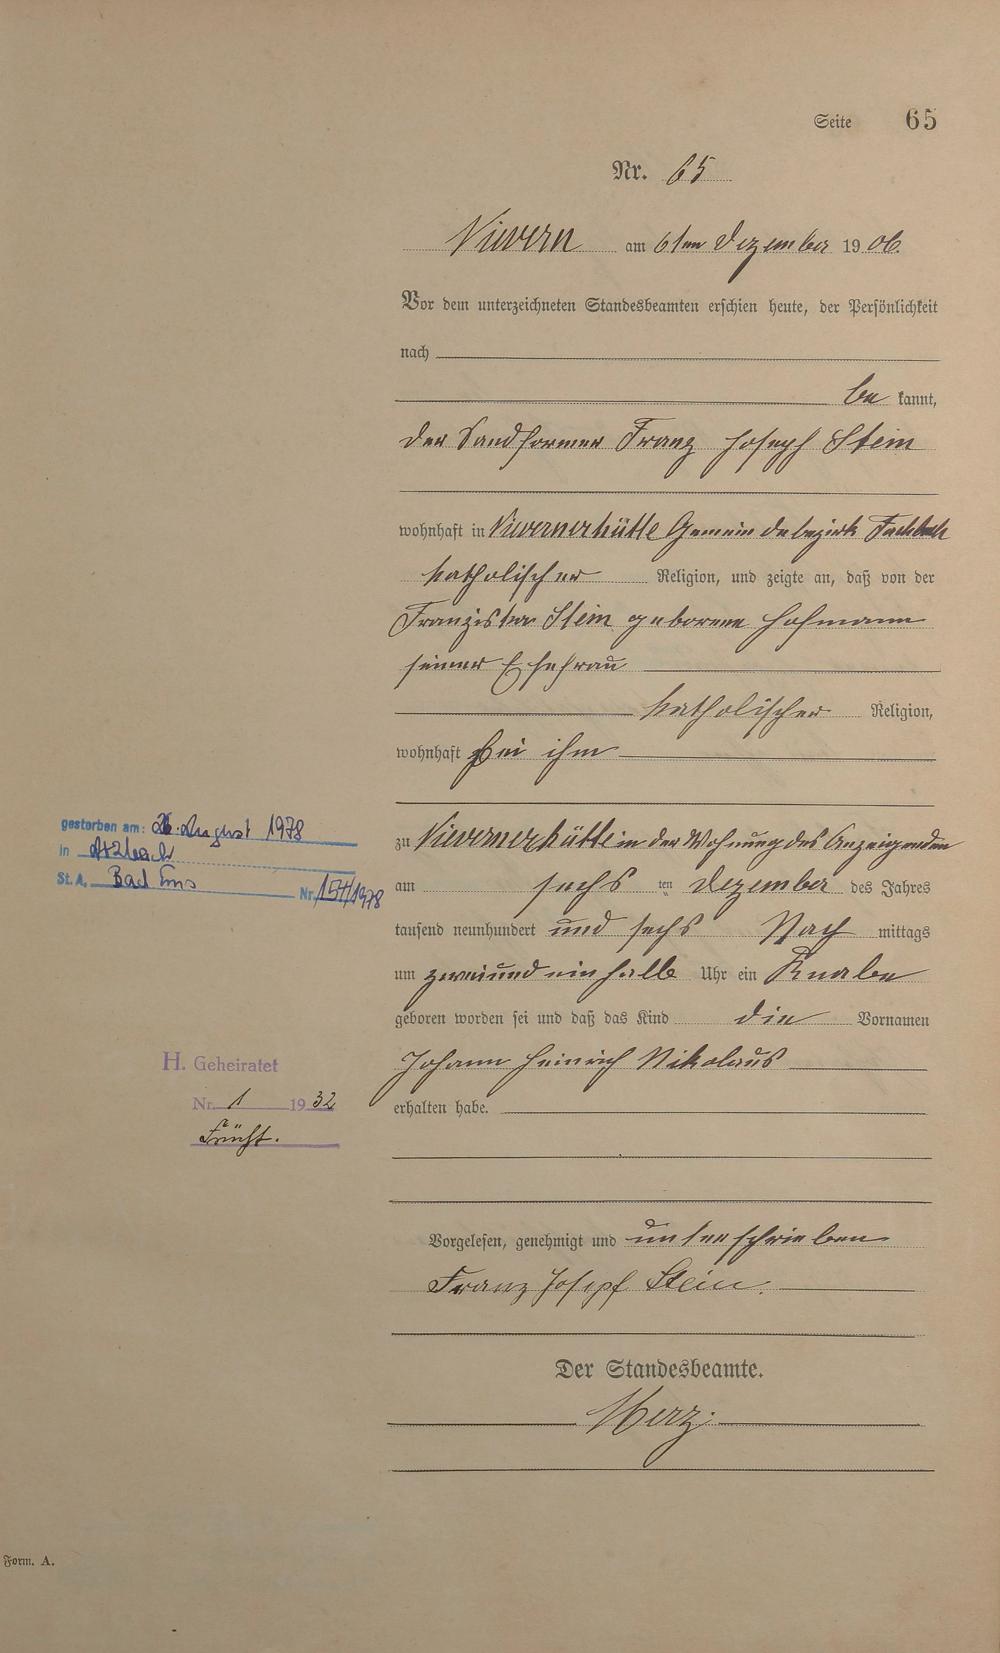 Seite 65
Nr. 65
Nievern am 6ten Dezember 1906.
Vor dem unterzeichneten Standesbeamten erschien heute, der Persönlichkeit
nach
be kannt,
der Sandformer Franz Joseph Stein
wohnhaft in Nievernerhütte Gemeindebezirk Fachbach
katholischer Religion, und zeigte an, daß von der
Franziska Stein geborene Hofmann
seiner Ehefrau
katholischer Religion,
wohnhaft bei ihm
zu Nievernerhütte in der Wohnung des Anzeigenden
am sechs ten Dezember des Jahres
tausend neunhundert und sechs Nach mittags
um zweiundeinhalb Uhr ein Knabe
geboren worden sei und daß das Kind die Vornamen
Johann Heinrich Nikolaus
erhalten habe.
Vorgelesen, genehmigt und unterschrieben
Franz Josepf Stein.
Der Standesbeamte.
Merz.
gestorben am: 26. August 1978
in
St. A. Bad Ems Nr. 154/1978
H. Geheiratet
Nr. 1 1932
Frücht.
Form. A.